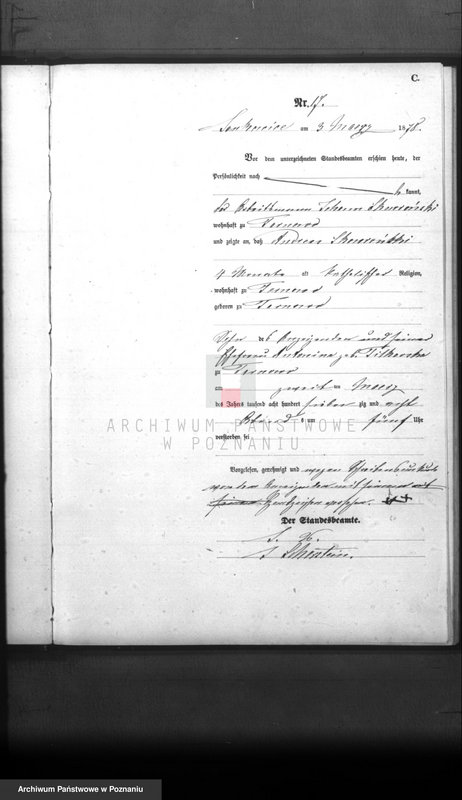 C.
Nr. 17.
am 3. Maerz 1878.
Vor dem unterzeichneten Standesbeamten erschien heute, der
Persönlichkeit nach
kannt,
der Arbeitsmann Johann Skowroński
wohnhaft zu
und zeigte an, daß Andreas Skowroński
4 Monate alt Katholischer Religion,
wohnhaft zu
geboren zu
Sohn des Anzeigenden und seiner
Ehefrau Antonina geb.
zu
am zweiten Maerz
des Jahrs tausend acht hundert sieben zig und acht
Abends um fünf Uhr
verstorben sei
Vorgelesen, genehmigt und wegen Schreibensunkunde
von dem Anzeigenden mit seinem
Handzeichen versehen. +++
Der Standesbeamte.
ARCHIWUM PAŃSTWOWE
W POZNANIU
Archiwum Państwowe w Poznaniu